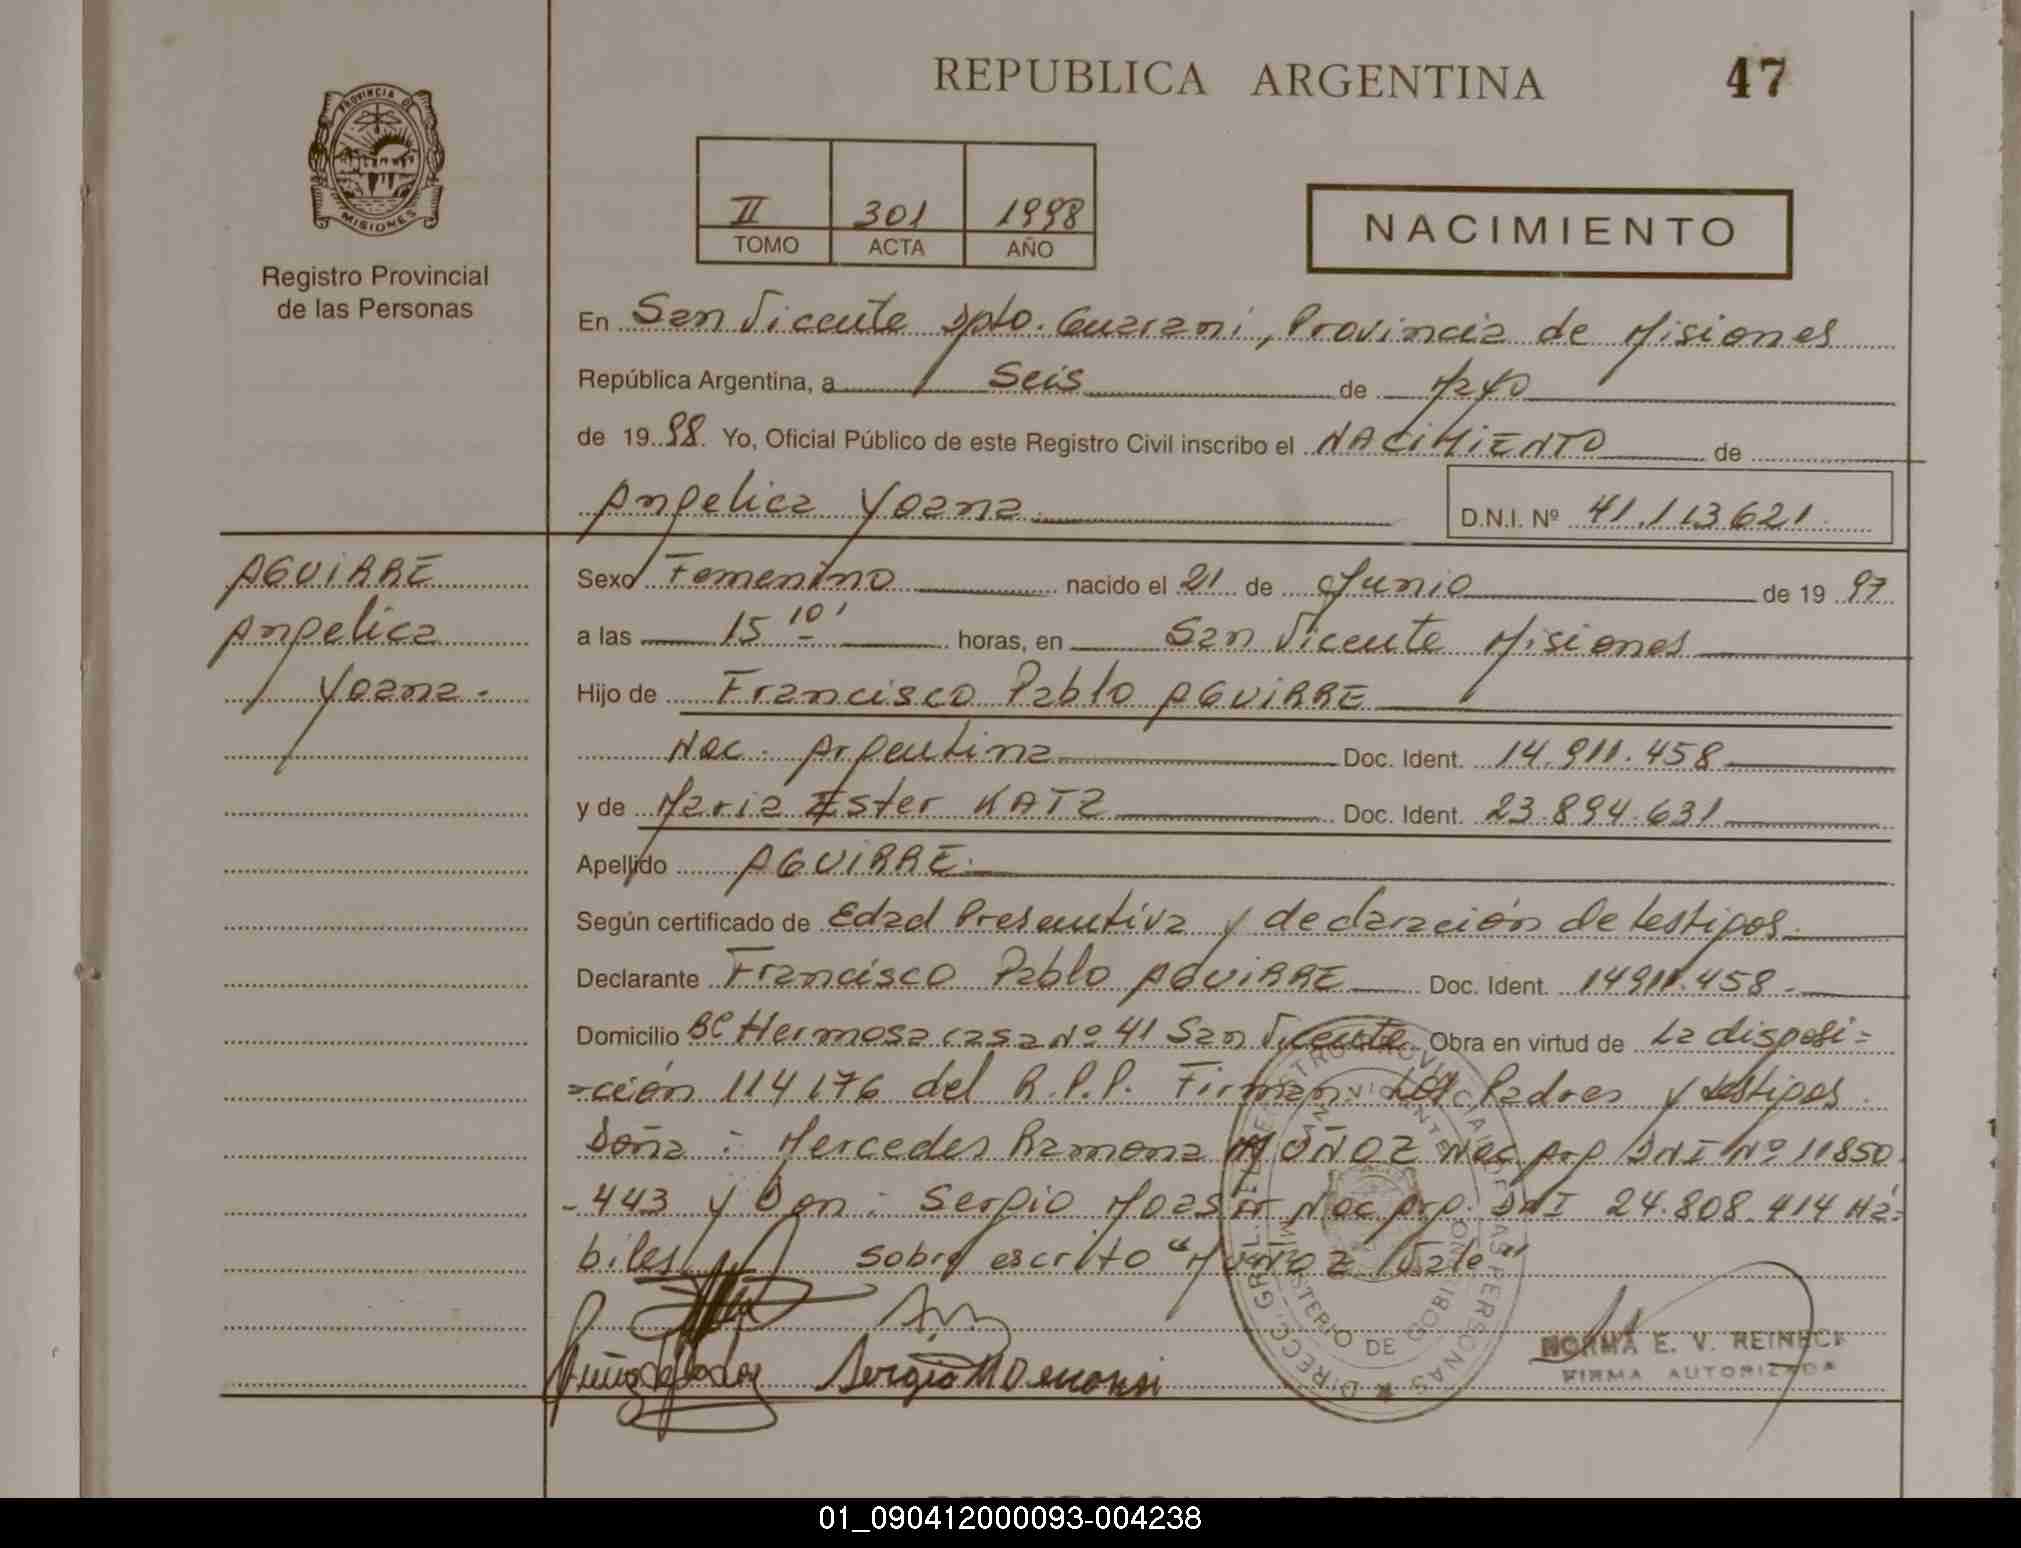 REPUBLICA ARGENTINA
47
PROVINCIA DE
MISIONES
Registro Provincial
de las Personas
II 301 1998
TOMO ACTA AÑO
NACIMIENTO
En San Vicente Dpto. Guarani, Provincia de Misiones
República Argentina, a Seis de Mayo
de 1998. Yo, Oficial Público de este Registro Civil inscribo el NACIMIENTO de
Angelica Yoana
D.N.I. Nº 41.113621
AGUIRRE
Angelica
Yoana.-
Sexo Femenino nacido el 21 de Junio de 1997
a las 15 10' horas, en San Vicente Misiones
Hijo de Francisco Pablo AGUIRRE
Nac. Argentina Doc. Ident. 14.911.458
y de Maria Ester KATZ Doc. Ident. 23.894.631
Apellido AGUIRRE.
Según certificado de Edad Presuntiva y declaración de testigos.
Declarante Francisco Pablo AGUIRRE Doc. Ident. 14911.458.-
Domicilio Bº Hermosa casa Nº 41 San Vicente Obra en virtud de La disposi=
=ción 114176 del R.P.P. Firman Los Padres y testigos
Doña: Mercedes Ramona MUÑOZ Nac Arg DNI Nº 11850
-443 y Don: Sergio Nac Arg. DNI 24.808.414 Há-
biles sobre escrito "Muñoz Vale"
Sergio
NORMA E. V.
FIRMA AUTORIZADA
MINISTERIO DE GOBIERNO
01_090412000093-004238